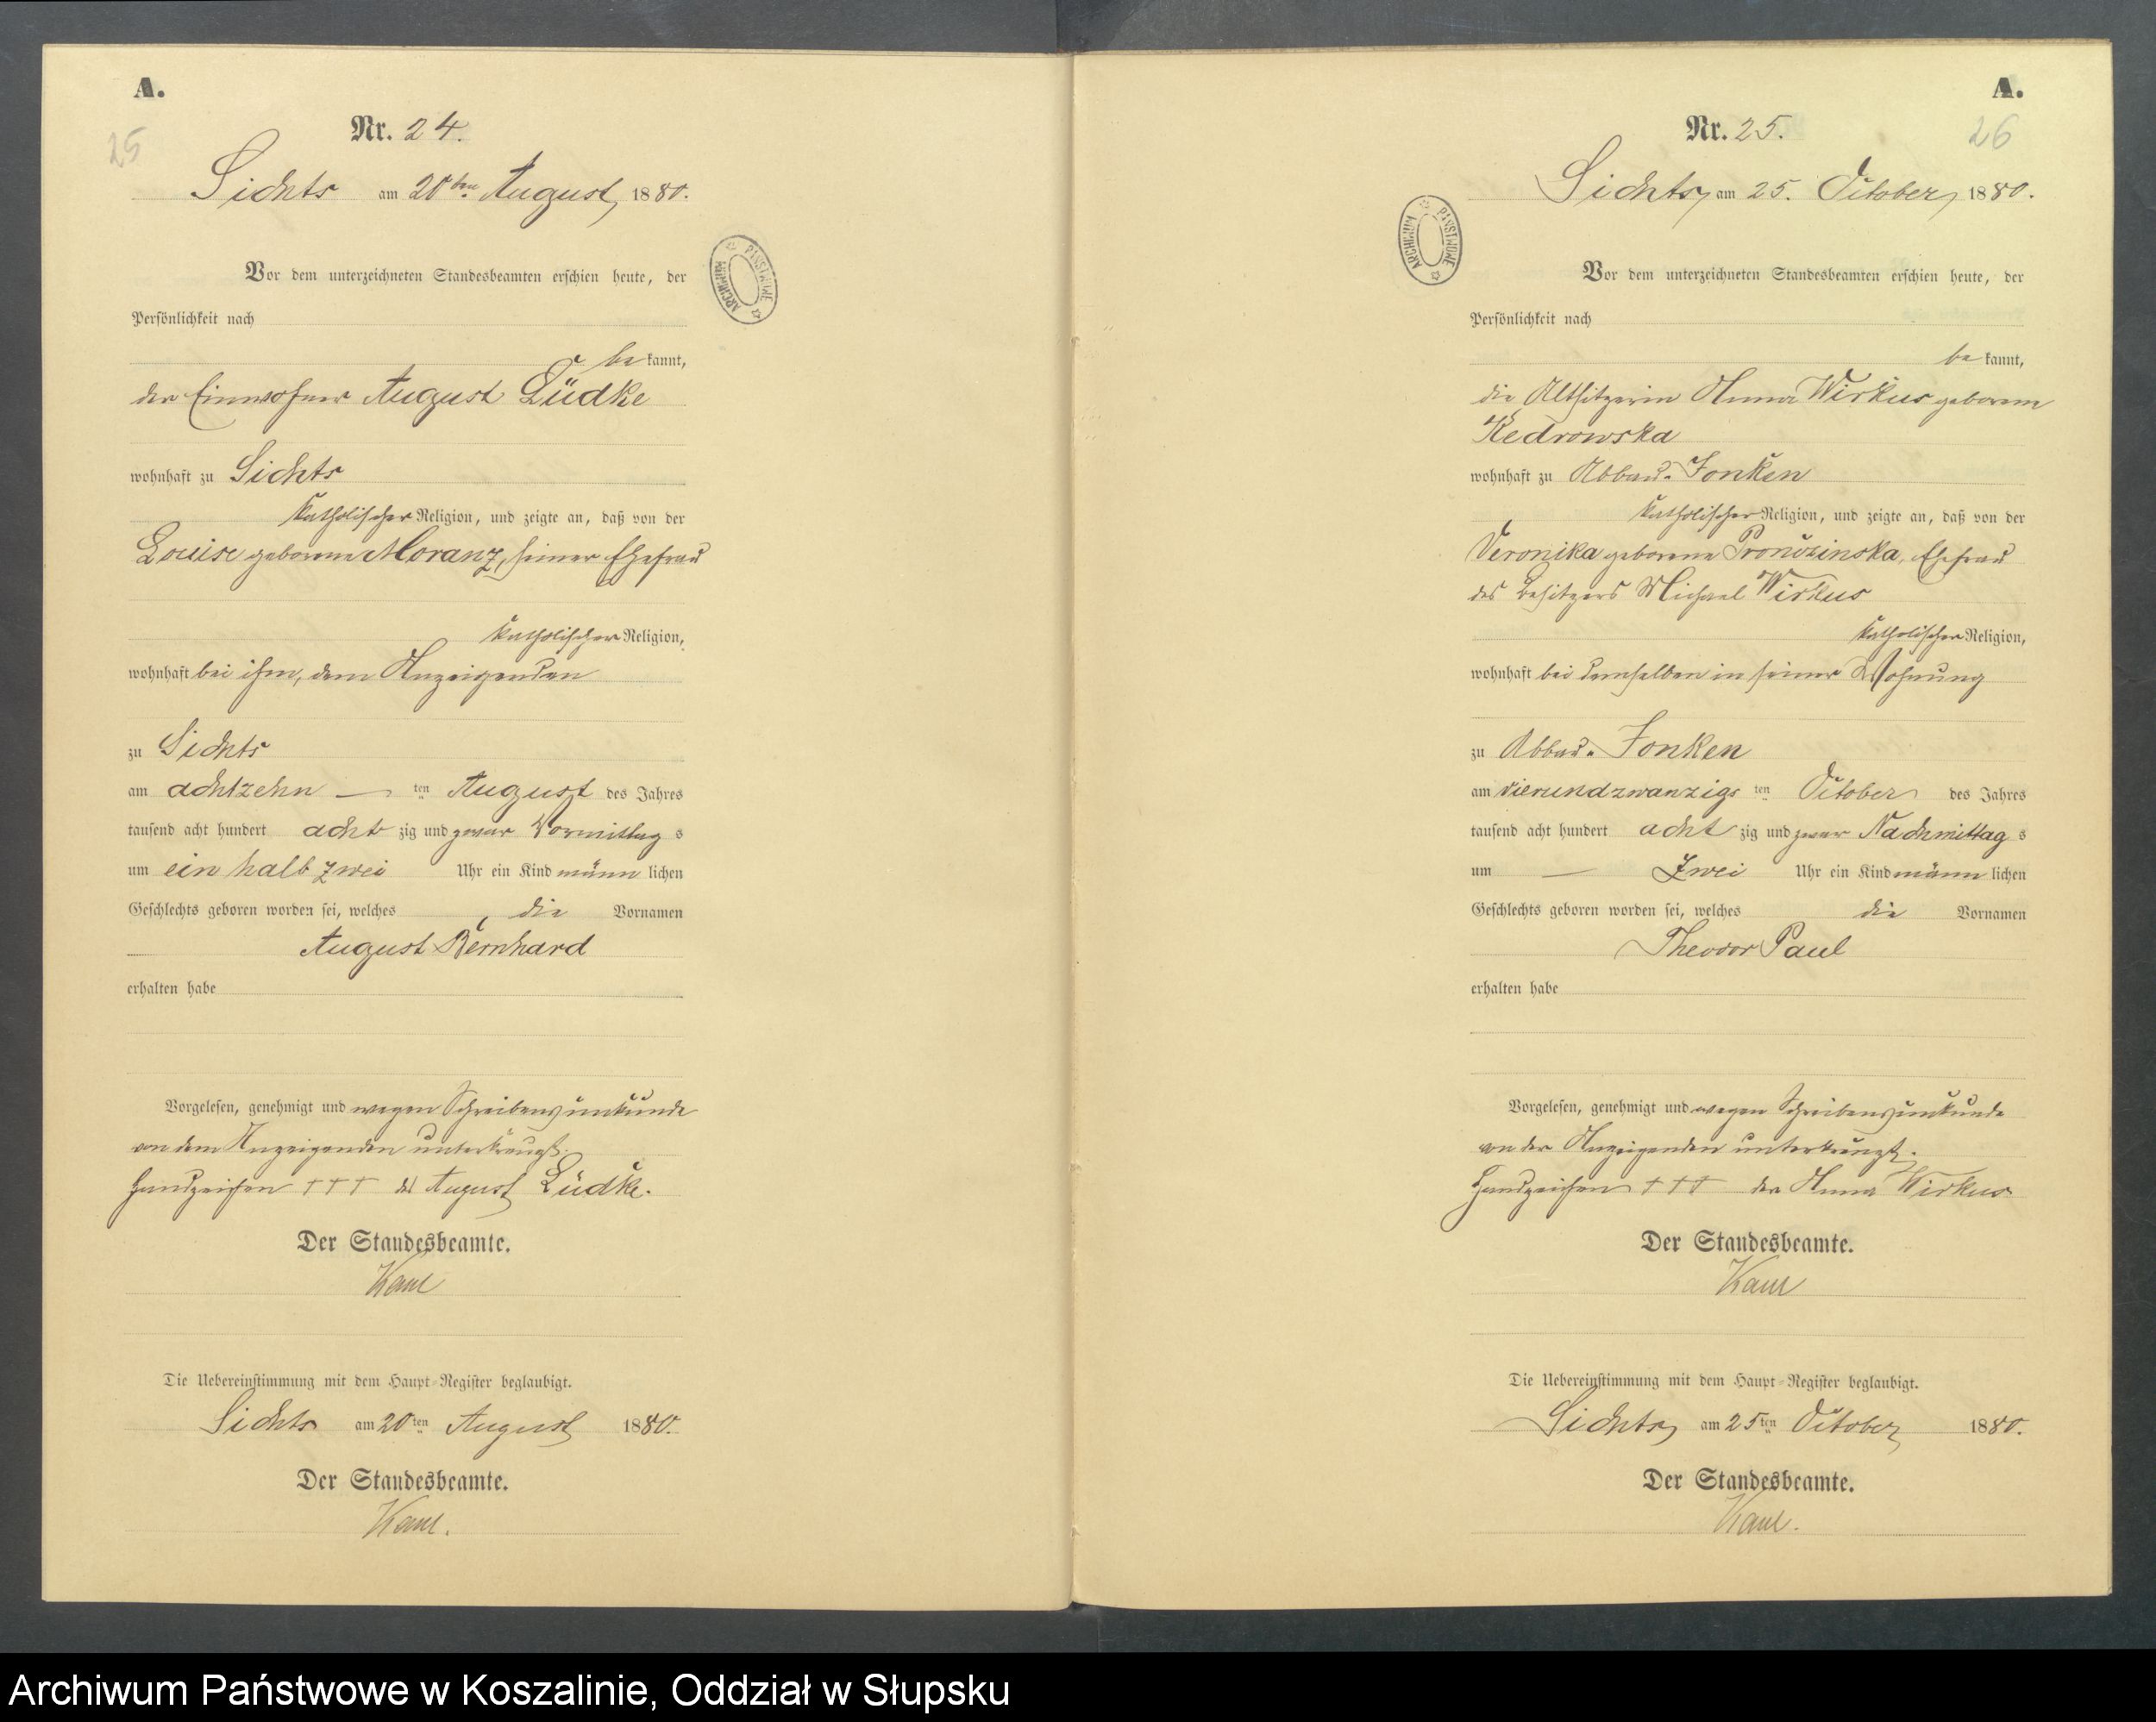 A.
25
Nr. 24.
Sichts am 20ten August 1880.
Vor dem unterzeichneten Standesbeamten erschien heute, der
Persönlichkeit nach
bekannt,
der Einwohner August Lüdke
wohnhaft zu Sichts
katholischer Religion, und zeigte an, daß von der
Louise geborene Moranz, seiner Ehefrau
katholischer Religion,
wohnhaft bei ihm, dem Anzeigenden
zu Sichts
am achtzehn — ten August des Jahres
tausend acht hundert acht zig und zwar Vormittag s
um ein halb zwei Uhr ein Kind männ lichen
Geschlechts geboren worden sei, welches die Vornamen
August Bernhard
erhalten habe
Vorgelesen, genehmigt und wegen Schreibensunkunde
von dem Anzeigenden unterkreuzt.
Handzeichen +++ des August Lüdke.
Der Standesbeamte.
Kaul
Die Uebereinstimmung mit dem Haupt-Register beglaubigt.
Sichts am 20ten August 1880.
Der Standesbeamte.
Kaul.
ARCHIWUM PAŃSTWOWE
A.
26
Nr. 25.
Sichts, am 25. October 1880.
Vor dem unterzeichneten Standesbeamten erschien heute, der
Persönlichkeit nach
bekannt,
die Altsitzerin Anna Wirkus geborene
Kedrowska
wohnhaft zu Abbau-Jonken
katholischer Religion, und zeigte an, daß von der
Veronika geborene Pronczinska, Ehefrau
des Besitzers Michael Wirkus
katholischer Religion,
wohnhaft bei demselben in seiner Wohnung
zu Abbau-Jonken
am vierundzwanzigs ten October des Jahres
tausend acht hundert acht zig und zwar Nachmittag s
um — Zwei Uhr ein Kind männ lichen
Geschlechts geboren worden sei, welches die Vornamen
Theodor Paul
erhalten habe
Vorgelesen, genehmigt und wegen Schreibensunkunde
von der Anzeigenden unterkreuzt.
Handzeichen +++ der Anna Wirkus
Der Standesbeamte.
Kaul
Die Uebereinstimmung mit dem Haupt-Register beglaubigt.
Sichts, am 25ten October 1880.
Der Standesbeamte.
Kaul.
ARCHIWUM PAŃSTWOWE
Archiwum Państwowe w Koszalinie, Oddział w Słupsku